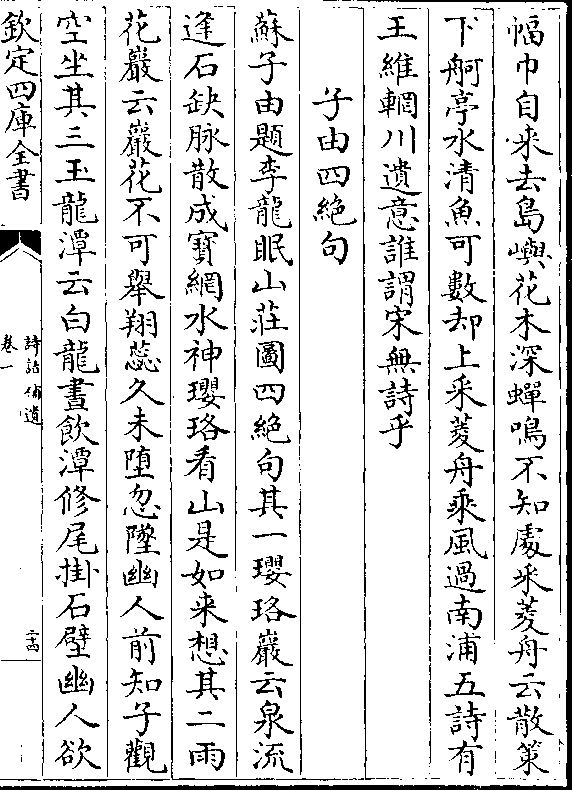 幅巾自来去島嶼花木深蟬鳴不知處采菱舟云散策
下舸亭水清魚可數却上采菱舟乘風過南浦五詩有
王維輞川遺意誰謂宋無詩乎
子由四絶句
蘇子由題李龍眠山莊圖四絶句其一瓔珞巖云泉流
逢石缺脉散成寳網水神瓔珞看山是如来想其二雨
花巖云巖花不可舉翔蕊久未堕忽墜幽人前知子觀
空坐其三玉龍潭云白龍晝飲潭修尾掛石壁幽人欲
欽定四庫全書
詩話補遺
卷一
二十四